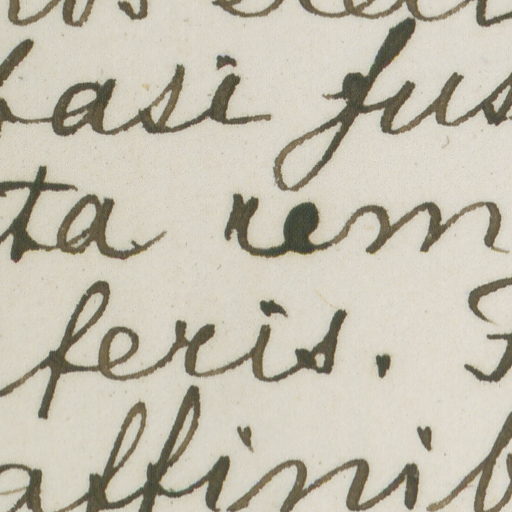 basi fus
ta rem
feris. F
affinib